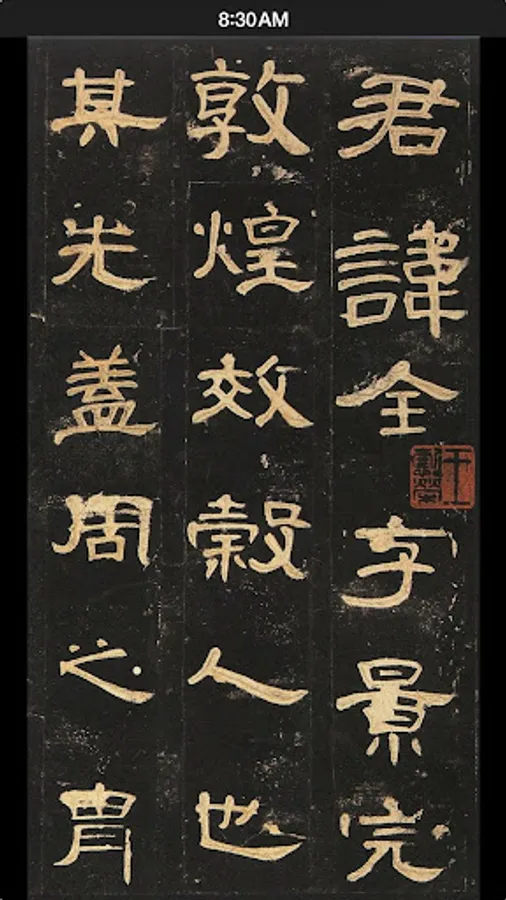 8:30AM
君諱全字景完
敦煌效穀人也
其先蓋周之胄